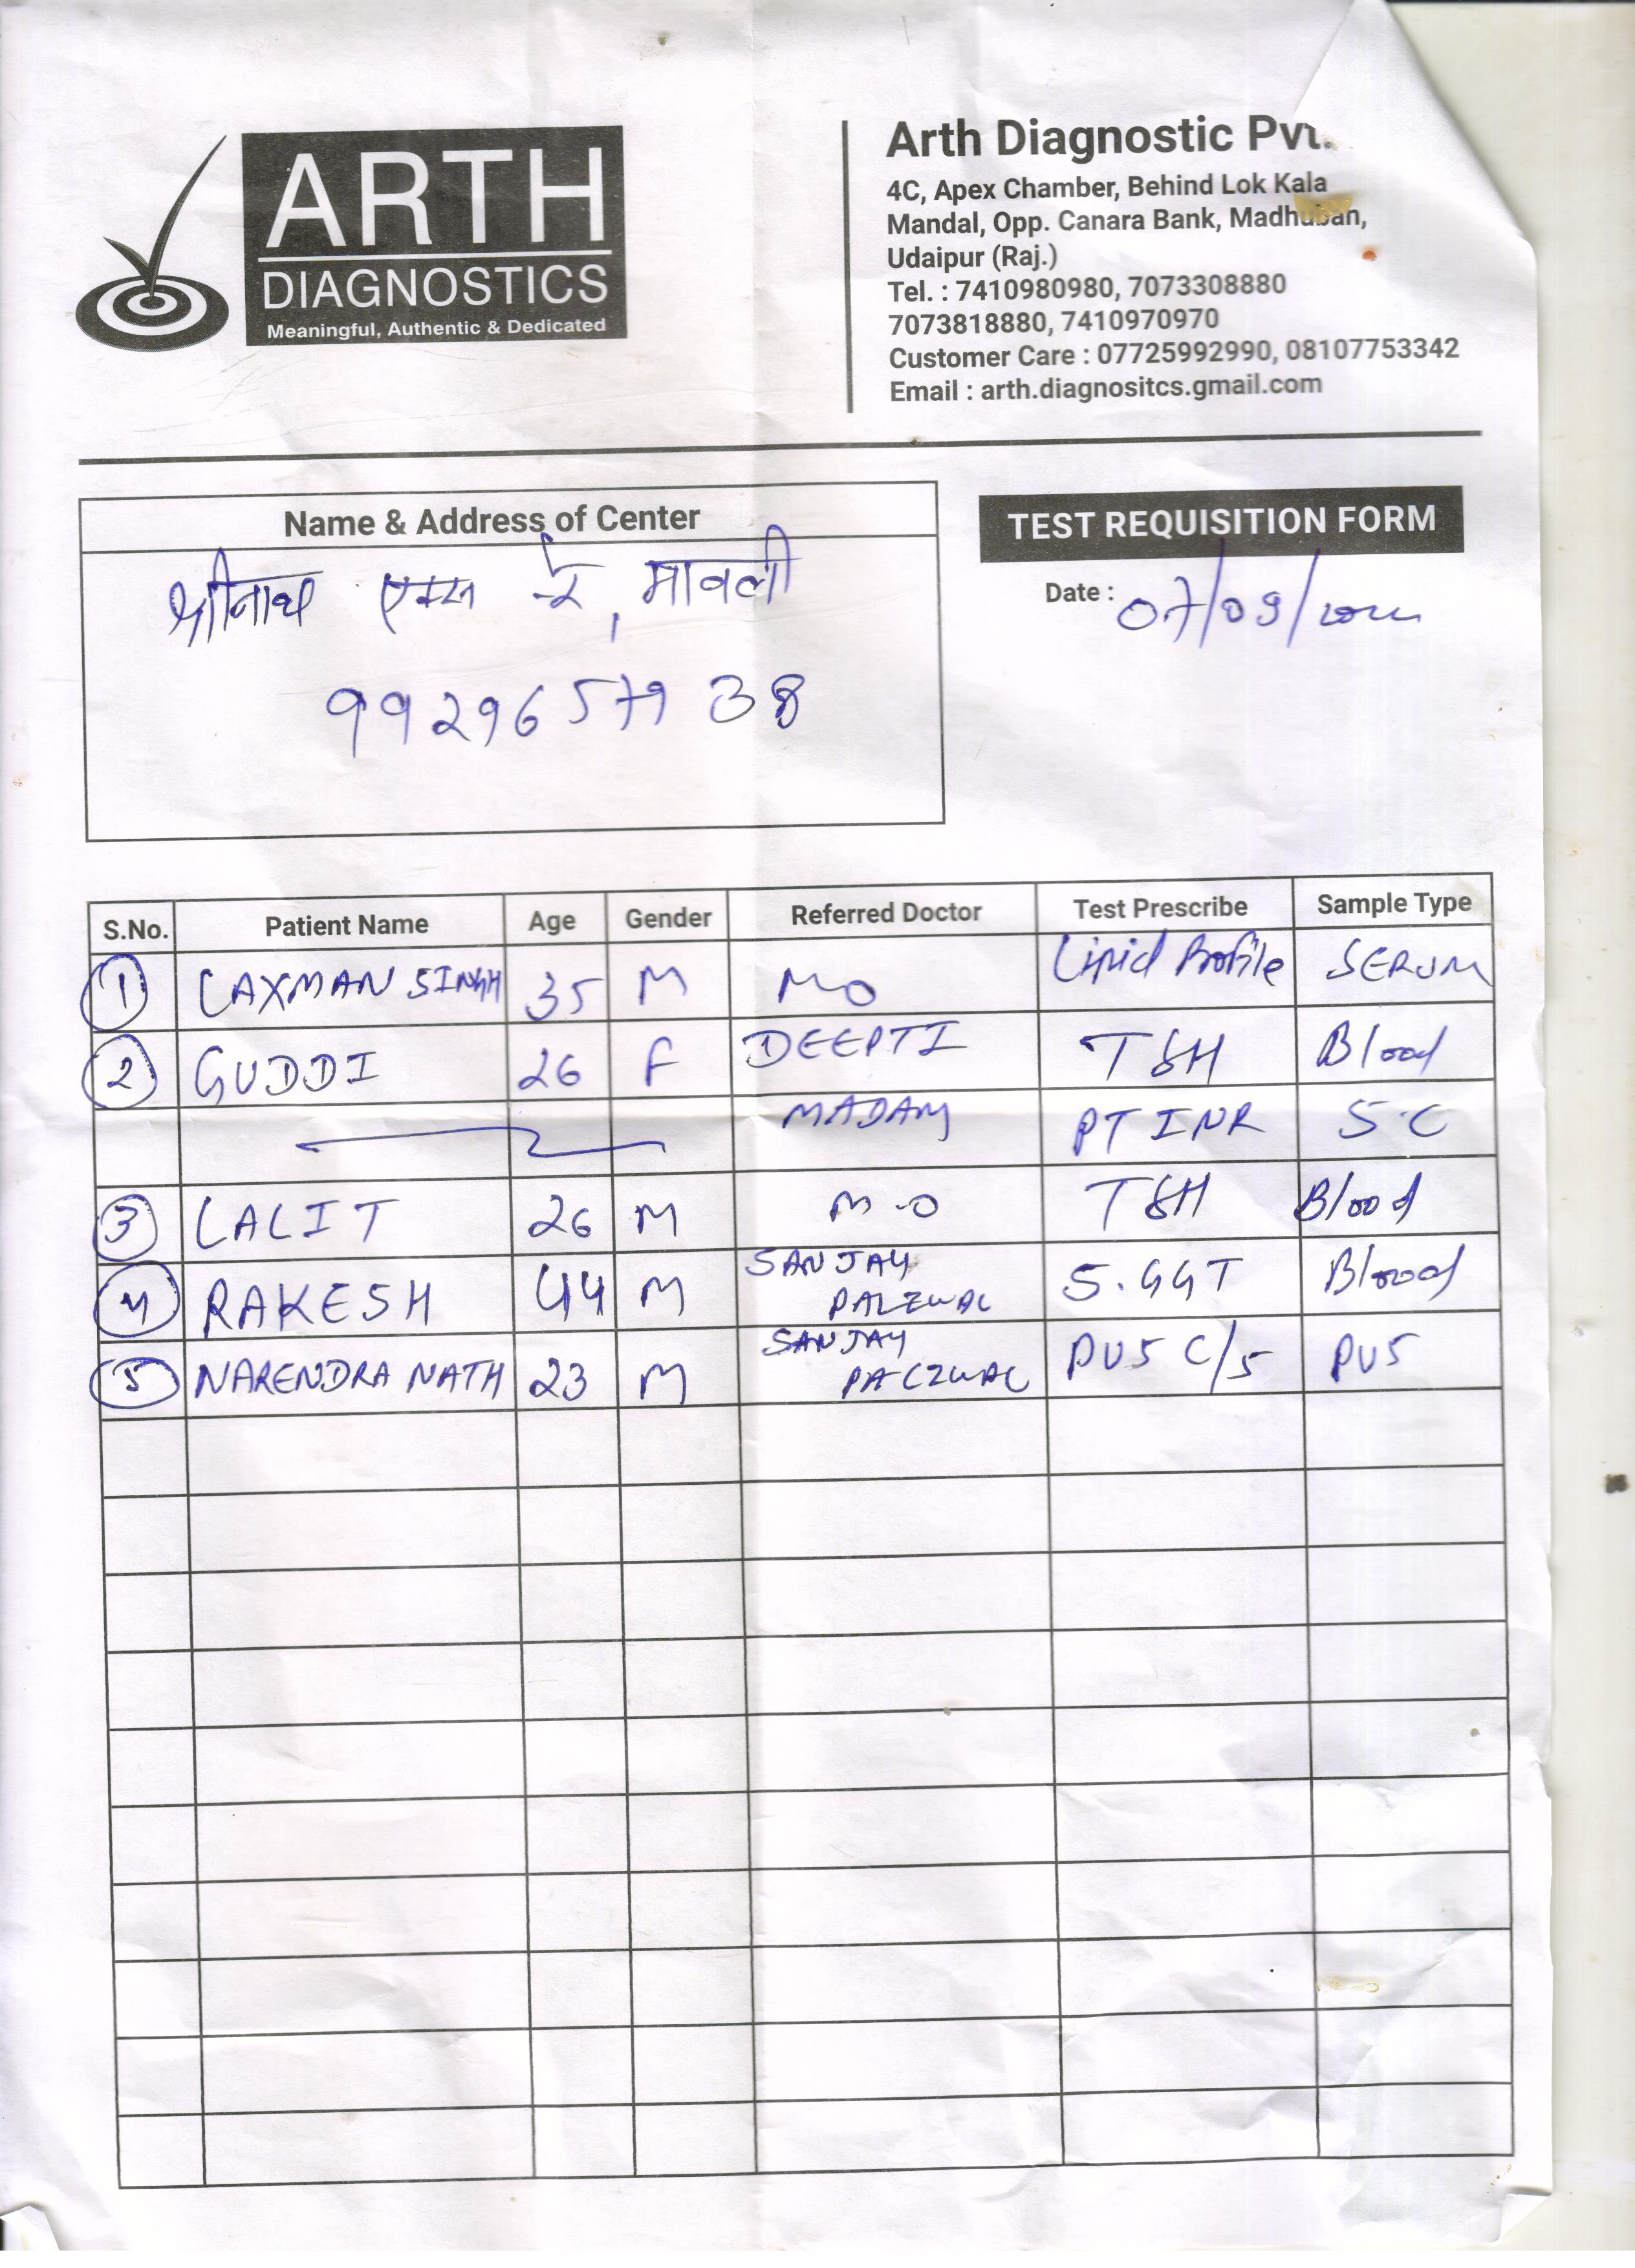 ARTH
DIAGNOSTICS
Meaningful, Authentic & Dedicated
Arth Diagnostic Pvt.
4C, Apex Chamber, Behind Lok Kala
Mandal, Opp. Canara Bank, Madhuban,
Udaipur (Raj.)
Tel. : 7410980980, 7073308880
7073818880, 7410970970
Customer Care : 07725992990, 08107753342
Email : arth.diagnositcs.gmail.com
Name & Address of Center
श्रीनाथ एक्स रे, मावली
9929657938
TEST REQUISITION FORM
Date : 07/09/2022
S.No. Patient Name Age Gender Referred Doctor Test Prescribe Sample Type
1 LAXMAN SINGH 35 M MO Lipid Profile SERUM
2 GUDDI 26 F DEEPTI TSH Blood
MADAM PT INR S.C
3 LALIT 26 M M.O TSH Blood
4 RAKESH 44 M SANJAY S.GGT Blood
5 NARENDRA NATH 23 M SANJAY PUS C/S PUS